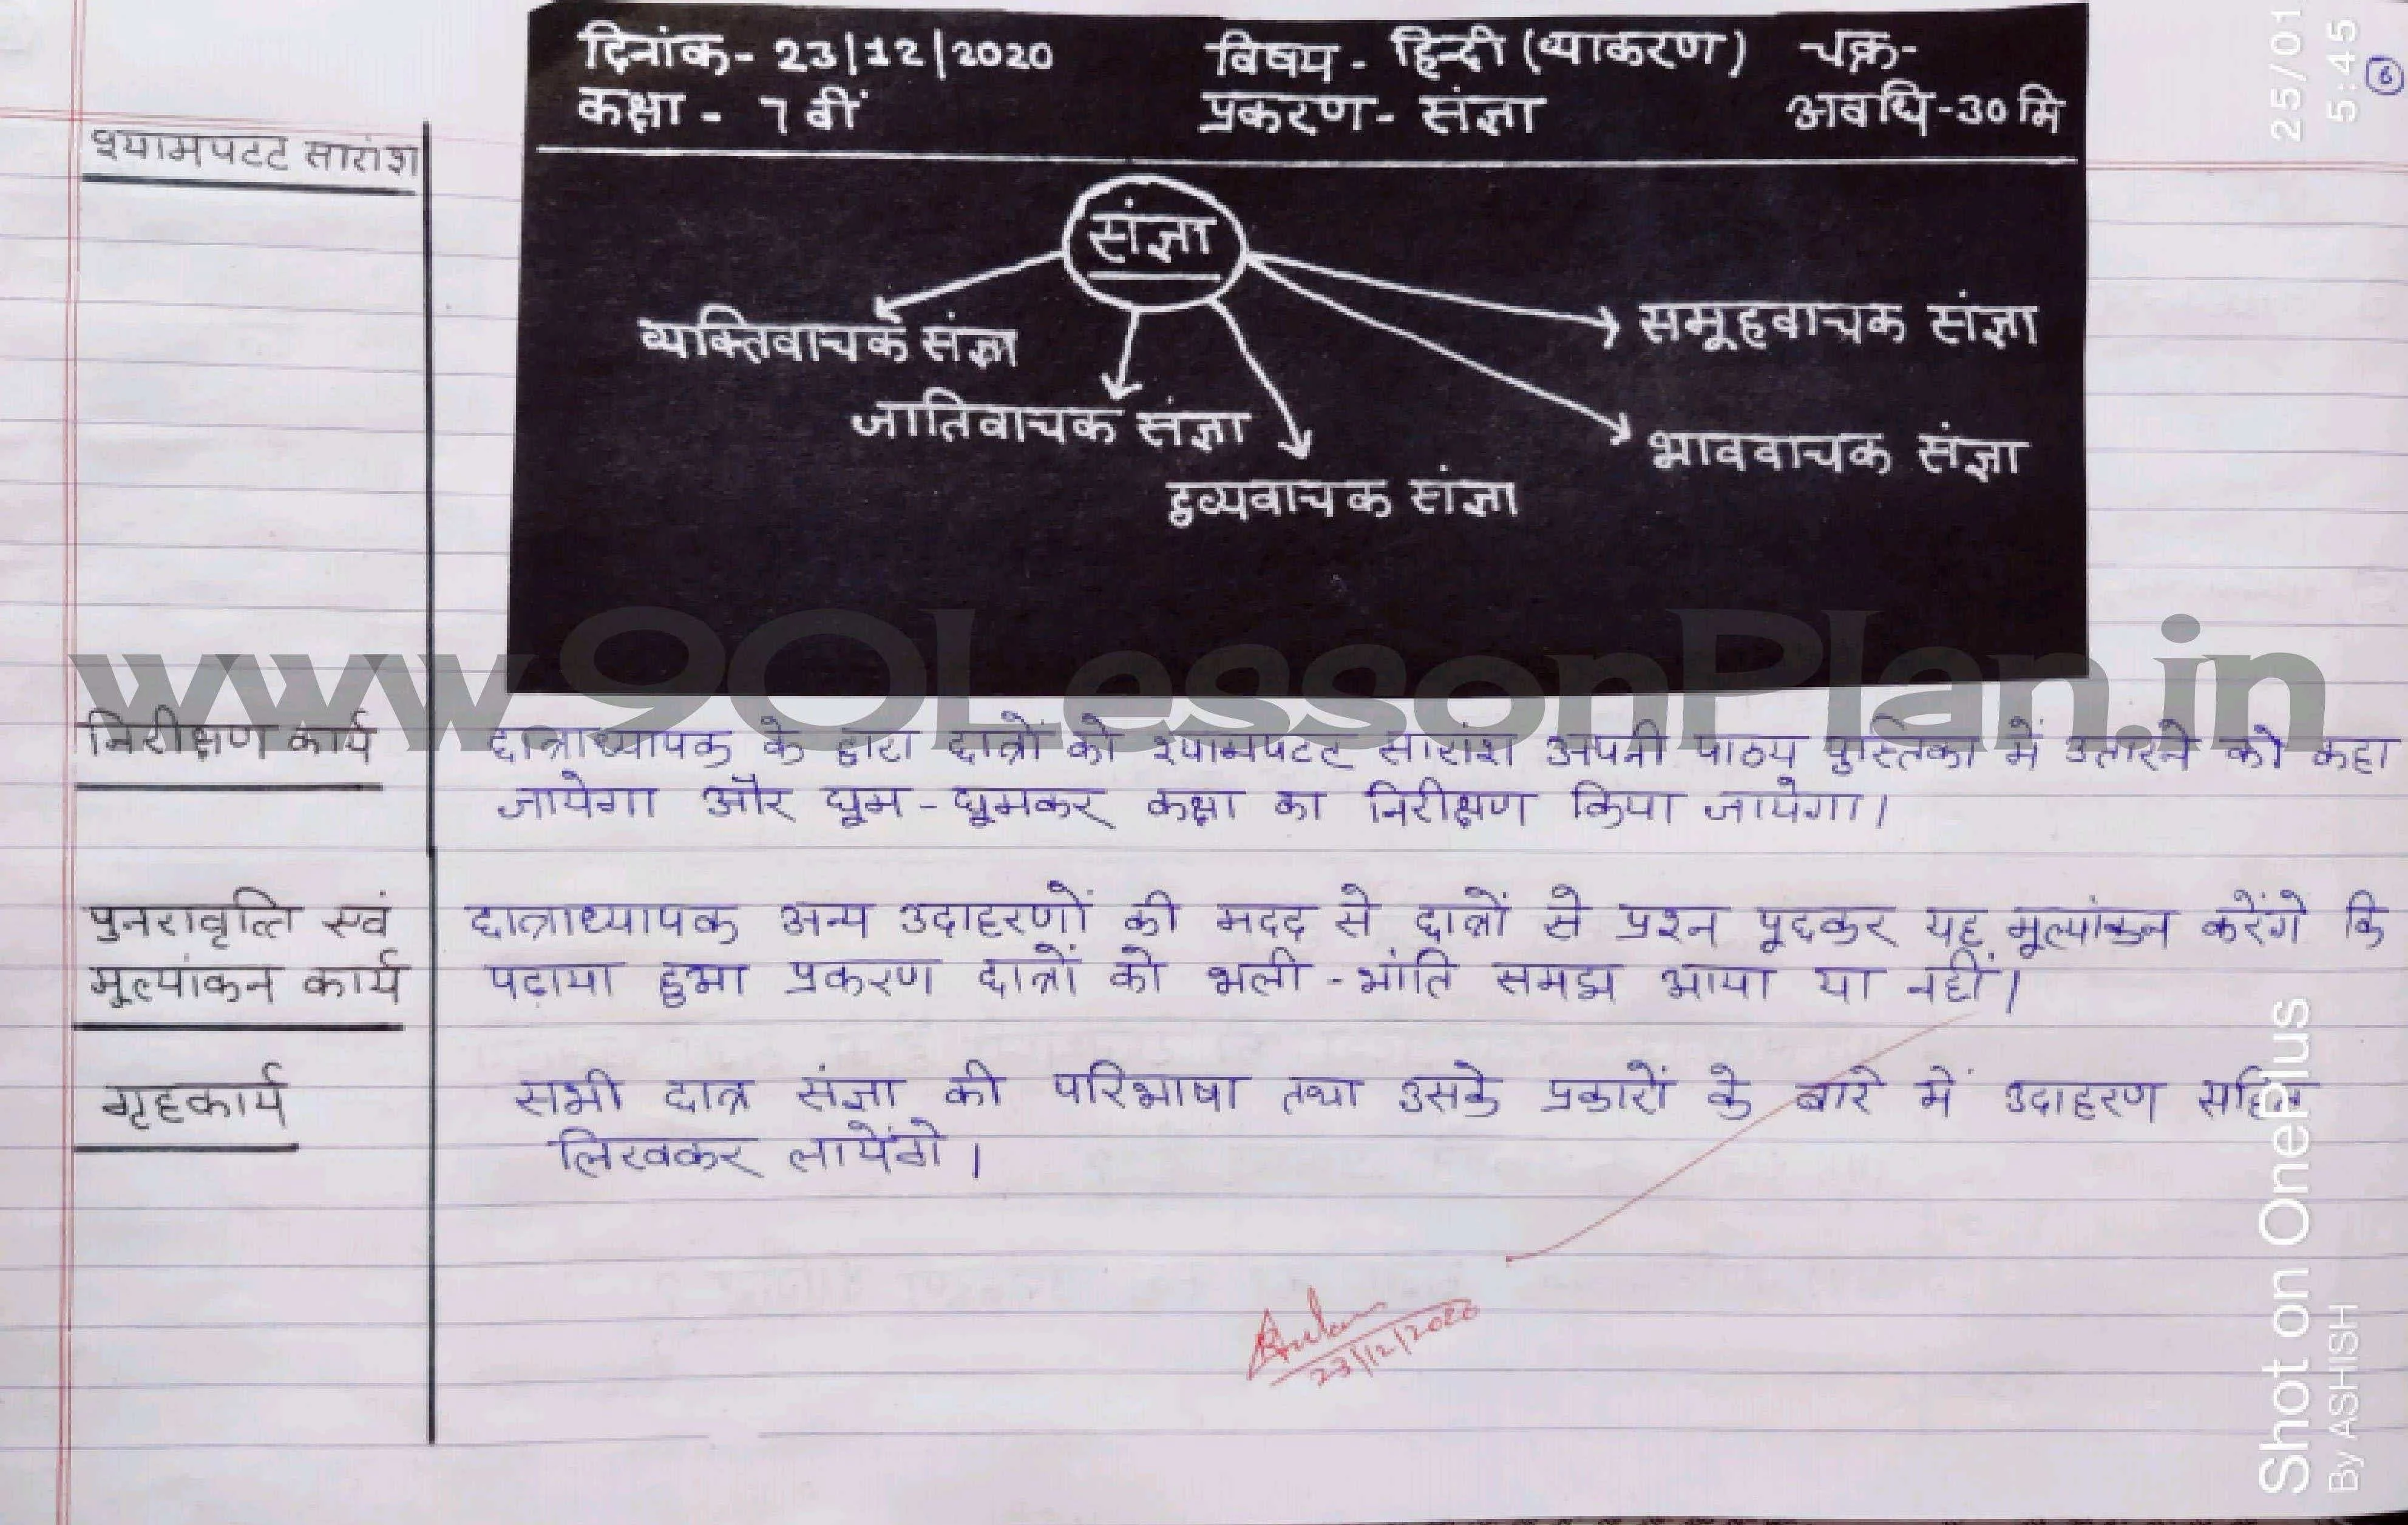 दिनांक- 23/12/2020 विषय - हिन्दी (व्याकरण) चक्र-
कक्षा - 7 वीं प्रकरण- संज्ञा अवधि-30 मि
25/01
5:45
6
श्यामपटट सारांश
संज्ञा
व्यक्तिवाचक संज्ञा
समूहवाचक संज्ञा
जातिवाचक संज्ञा
भाववाचक संज्ञा
द्रव्यवाचक संज्ञा
www.90LessonPlan.in
निरीक्षण कार्य
छात्राध्यापक के द्वारा छात्रों को श्यामपटट सारांश अपनी पाठ्य पुस्तिका में उतारने को कहा
जायेगा और घूम-घूमकर कक्षा का निरीक्षण किया जायेगा।
पुनरावृत्ति एवं
मूल्यांकन कार्य
छात्राध्यापक अन्य उदाहरणों की मदद से छात्रों से प्रश्न पूछकर यह मूल्यांकन करेंगे कि
पढ़ाया हुआ प्रकरण छात्रों को भली-भांति समझ आया या नहीं।
गृहकार्य
सभी छात्र संज्ञा की परिभाषा तथा उसके प्रकारों के बारे में उदाहरण सहित
लिखकर लायेंगे।
23/12/2020
Shot on OnePlus
By ASHISH